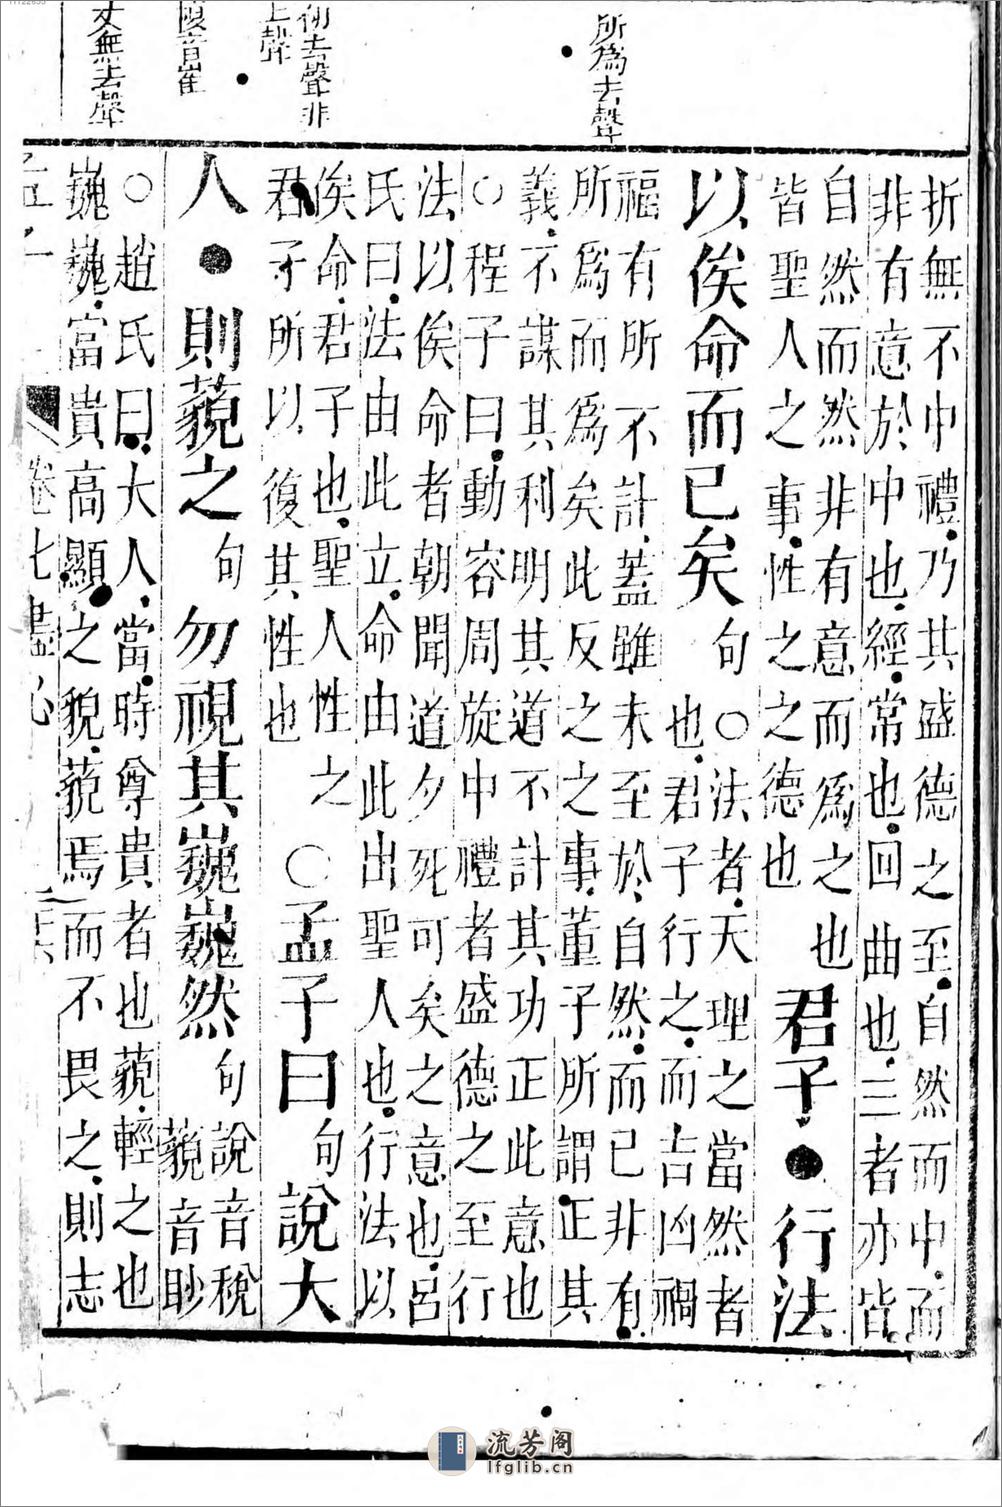 所爲去聲
初去聲非
上聲
音崔
丈無去聲
折無不中禮乃其盛德之至自然而中而
非有意於中也經常也回曲也三者亦皆
自然而然非有意而爲之也
皆聖人之事性之之德也
君子●行法
以俟命而已矣句
○法者天理之當然者
也君子行之而吉凶禍
福有所不計蓋雖未至於自然而已非有
所爲而爲矣此反之之事董子所謂正其
義不謀其利明其道不計其功正此意也
○程子曰動容周旋中禮者盛德之至行
法以俟命者朝聞道夕死可矣之意也呂
氏曰法由此立命由此出聖人也行法以
俟命君子也聖人性之
君子所以復其性也
○孟子曰句說大
人●則藐之句勿視其巍巍然句
說音稅
藐音眇
○趙氏曰大人當時尊貴者也藐輕之也
巍巍富貴高顯之貌藐焉而不畏之則志
卷七盡心
流芳阁
lfglib.cn